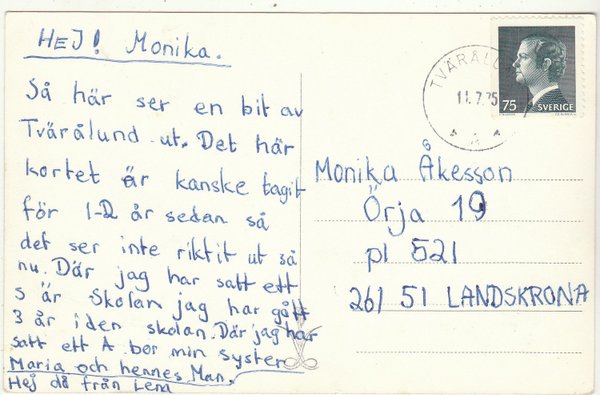 HEJ! Monika.
Så här ser en bit av
Tvärålund ut. Det här
kortet är kanske tagit
för 1-2 år sedan så
det ser inte riktit ut så
nu. Där jag har satt ett
S är skolan jag har gått
3 år i den skolan. Där jag har
satt ett A bor min syster
Maria och hennes Man.
Hej då från Lena
TVÄRÅLUND
11.7.75
75 SVERIGE
Monika Åkesson
Örja 19
pl 521
261 51 LANDSKRONA